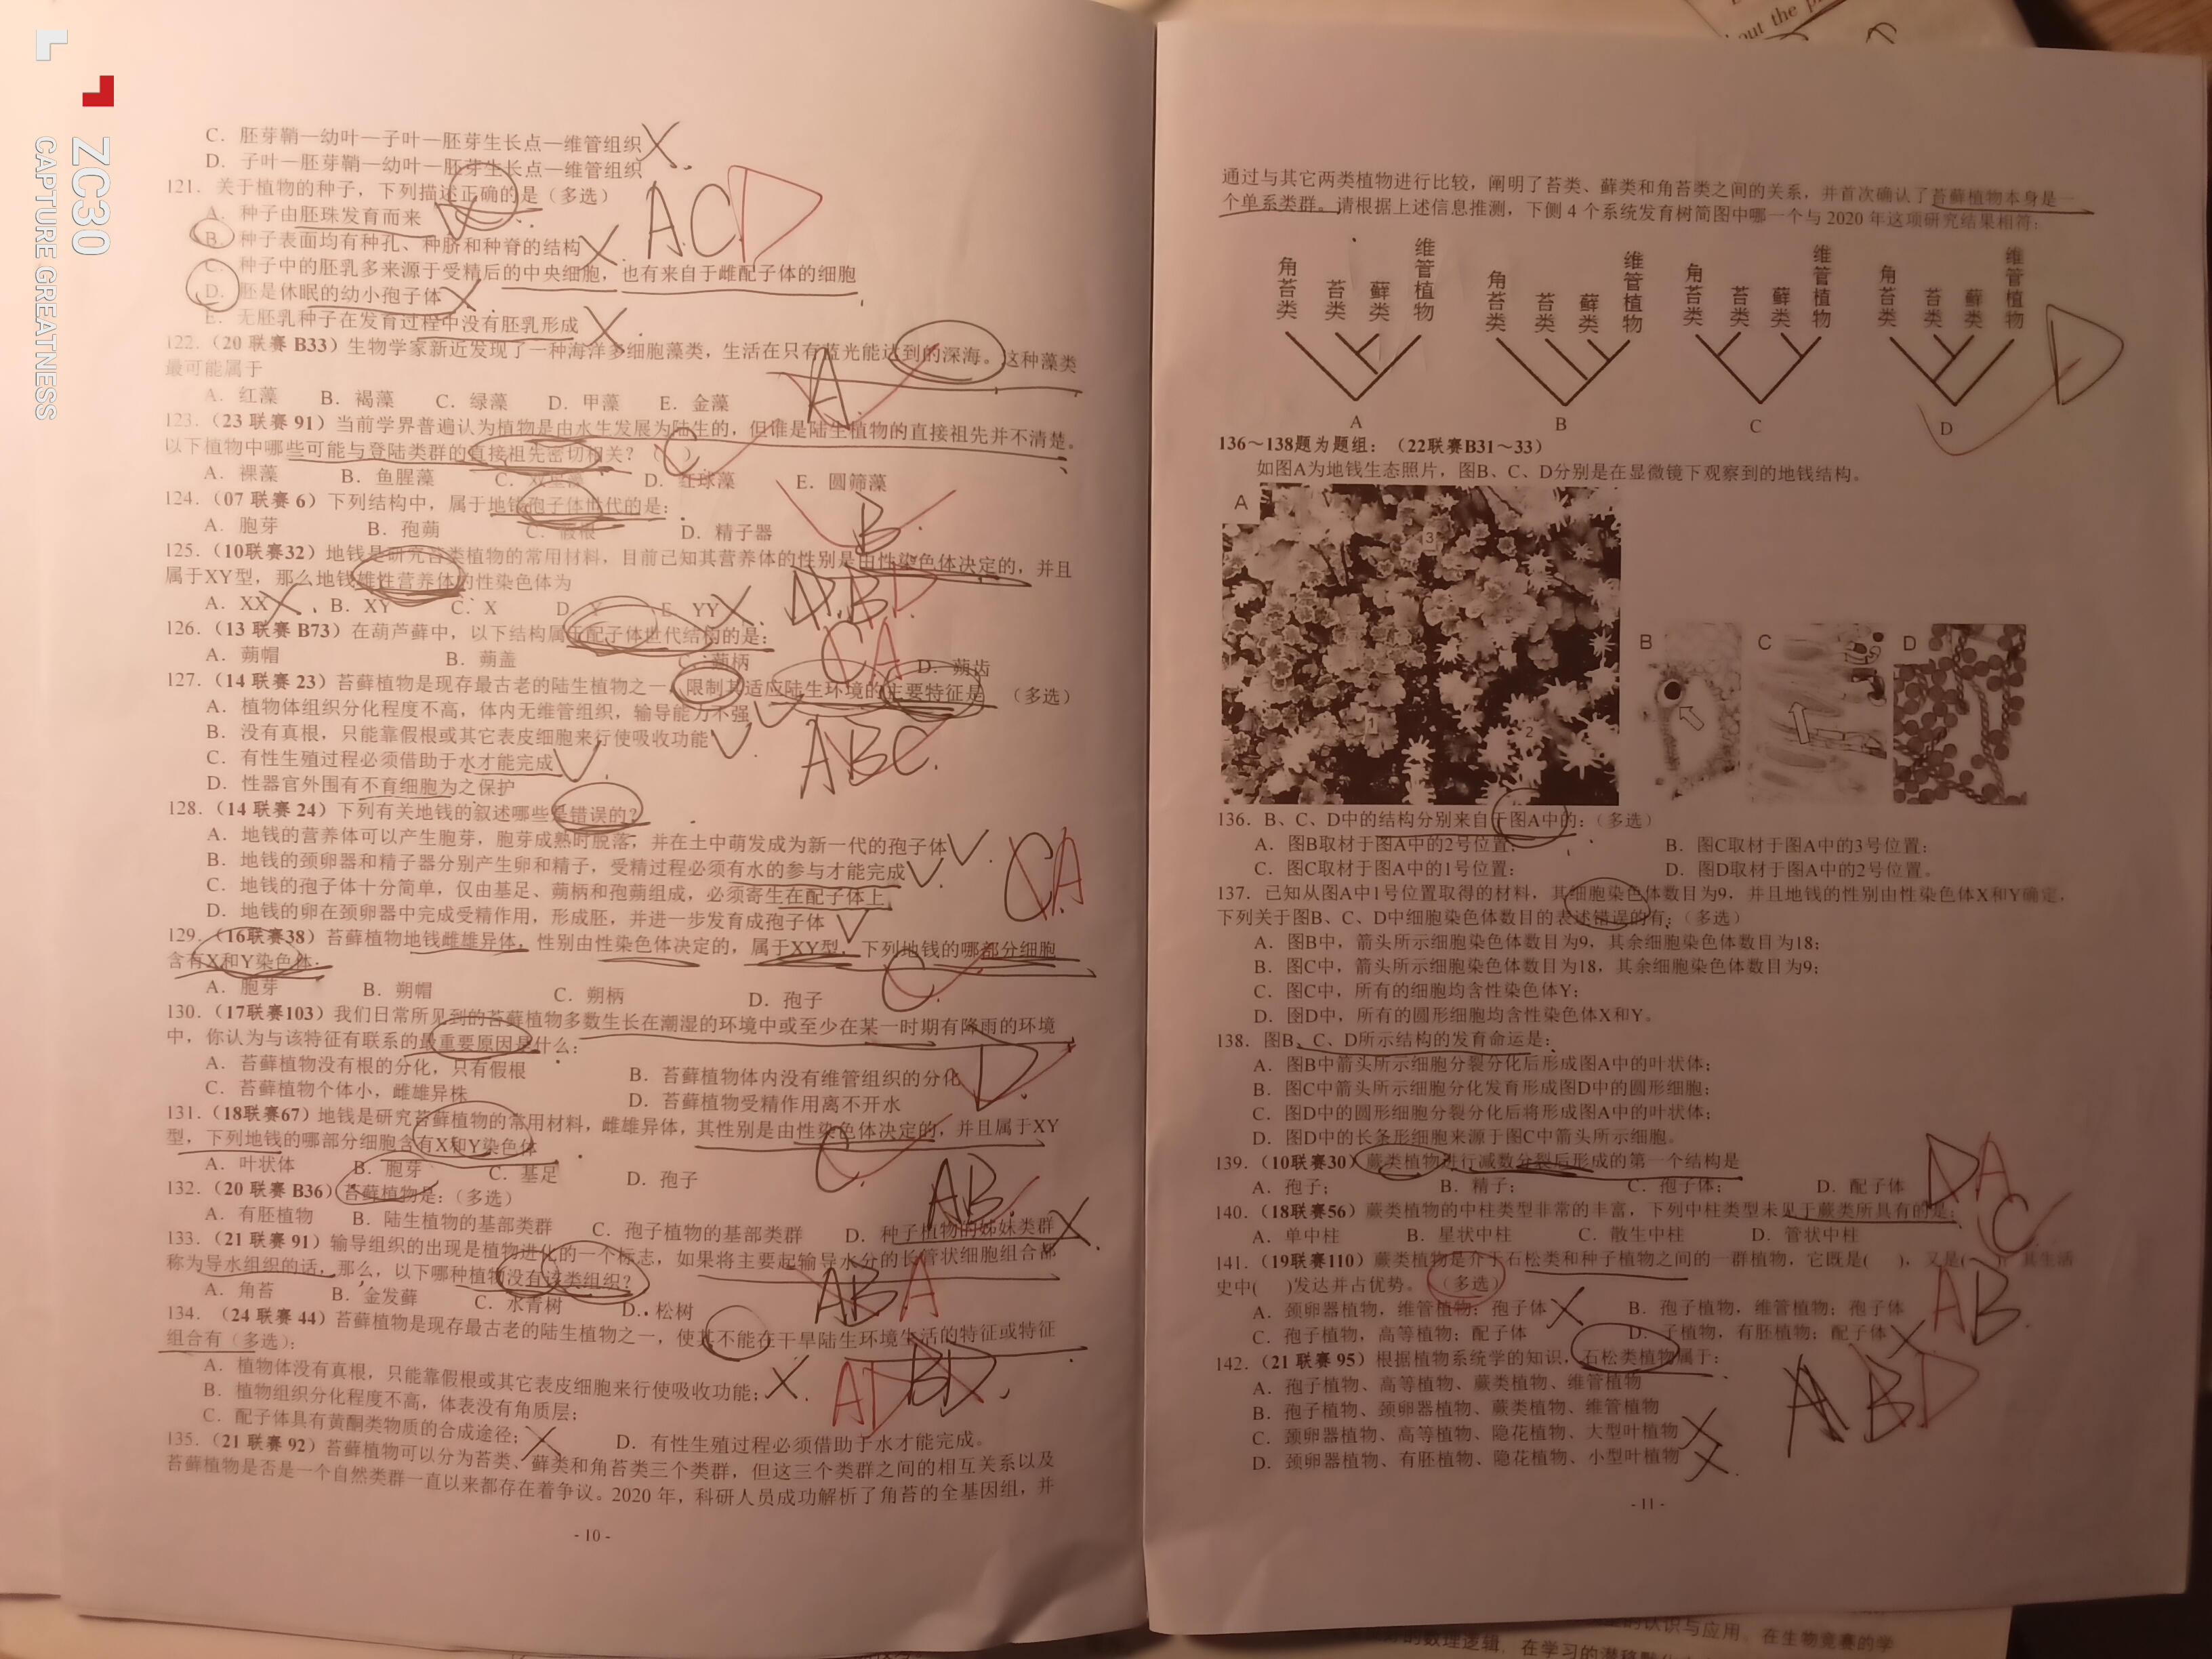 ZC30
CAPTURE GREATNESS
C．胚芽鞘—幼叶—子叶—胚芽生长点—维管组织
D．子叶—胚芽鞘—幼叶—胚芽生长点—维管组织
121．关于植物的种子，下列描述正确的是（多选）
A．种子由胚珠发育而来
B．种子表面均有种孔、种脐和种脊的结构
C．种子中的胚乳多来源于受精后的中央细胞，也有来自于雌配子体的细胞
D．胚是休眠的幼小孢子体
E．无胚乳种子在发育过程中没有胚乳形成
ACD
122．（20 联赛 B33）生物学家新近发现了一种海洋多细胞藻类，生活在只有蓝光能达到的深海。这种藻类
最可能属于
A．红藻 B．褐藻 C．绿藻 D．甲藻 E．金藻
A
123．（23 联赛 91）当前学界普遍认为植物是由水生发展为陆生的，但谁是陆生植物的直接祖先并不清楚。
以下植物中哪些可能与登陆类群的直接祖先密切相关？（ C ）
A．裸藻 B．鱼腥藻 C．双星藻 D．红球藻 E．圆筛藻
124．（07 联赛 6）下列结构中，属于地钱孢子体世代的是：
A．胞芽 B．孢蒴 C．假根 D．精子器
B
125．（10联赛32）地钱是研究苔类植物的常用材料，目前已知其营养体的性别是由性染色体决定的，并且
属于XY型，那么地钱雄性营养体的性染色体为
A．XX B．XY C．X D．Y E．YY
D
126．（13 联赛 B73）在葫芦藓中，以下结构属于配子体世代结构的是：
A．蒴帽 B．蒴盖 C．蒴柄 D．蒴齿
CA
127．（14 联赛 23）苔藓植物是现存最古老的陆生植物之一，限制其适应陆生环境的主要特征是 （多选）
A．植物体组织分化程度不高，体内无维管组织，输导能力不强
B．没有真根，只能靠假根或其它表皮细胞来行使吸收功能
C．有性生殖过程必须借助于水才能完成
D．性器官外围有不育细胞为之保护
ABC
128．（14 联赛 24）下列有关地钱的叙述哪些是错误的？
A．地钱的营养体可以产生胞芽，胞芽成熟时脱落，并在土中萌发成为新一代的孢子体
B．地钱的颈卵器和精子器分别产生卵和精子，受精过程必须有水的参与才能完成
C．地钱的孢子体十分简单，仅由基足、蒴柄和孢蒴组成，必须寄生在配子体上
D．地钱的卵在颈卵器中完成受精作用，形成胚，并进一步发育成孢子体
CA
129．（16联赛38）苔藓植物地钱雌雄异体，性别由性染色体决定的，属于XY型，下列地钱的哪部分细胞
含有X和Y染色体．
A．胞芽 B．朔帽 C．朔柄 D．孢子
C
130．（17联赛103）我们日常所见到的苔藓植物多数生长在潮湿的环境中或至少在某一时期有降雨的环境
中，你认为与该特征有联系的最重要原因是什么：
A．苔藓植物没有根的分化，只有假根 B．苔藓植物体内没有维管组织的分化
C．苔藓植物个体小，雌雄异株 D．苔藓植物受精作用离不开水
D
131．（18联赛67）地钱是研究苔藓植物的常用材料，雌雄异体，其性别是由性染色体决定的，并且属于XY
型，下列地钱的哪部分细胞含有X和Y染色体
A．叶状体 B．胞芽 C．基足 D．孢子
C
132．（20 联赛 B36）苔藓植物是：（多选）
A．有胚植物 B．陆生植物的基部类群 C．孢子植物的基部类群 D．种子植物的姊妹类群
AB
133．（21 联赛 91）输导组织的出现是植物进化的一个标志，如果将主要起输导水分的长管状细胞组合都
称为导水组织的话，那么，以下哪种植物没有该类组织？
A．角苔 B．金发藓 C．水青树 D．松树
AB A
134．（24 联赛 44）苔藓植物是现存最古老的陆生植物之一，使其不能在干旱陆生环境生活的特征或特征
组合有（多选）：
A．植物体没有真根，只能靠假根或其它表皮细胞来行使吸收功能；
B．植物组织分化程度不高，体表没有角质层；
C．配子体具有黄酮类物质的合成途径； D．有性生殖过程必须借助于水才能完成。
AD BD
135．（21 联赛 92）苔藓植物可以分为苔类、藓类和角苔类三个类群，但这三个类群之间的相互关系以及
苔藓植物是否是一个自然类群一直以来都存在着争议。2020 年，科研人员成功解析了角苔的全基因组，并
- 10 -
通过与其它两类植物进行比较，阐明了苔类、藓类和角苔类之间的关系，并首次确认了苔藓植物本身是一
个单系类群。请根据上述信息推测，下侧 4 个系统发育树简图中哪一个与 2020 年这项研究结果相符：
角苔类 苔类 藓类 维管植物 角苔类 苔类 藓类 维管植物 角苔类 苔类 藓类 维管植物 角苔类 苔类 藓类 维管植物
A B C D
D
136～138题为题组：（22联赛B31～33）
如图A为地钱生态照片，图B、C、D分别是在显微镜下观察到的地钱结构。
A 3 1 2 B C D
136．B、C、D中的结构分别来自于图A中的：（多选）
A．图B取材于图A中的2号位置； B．图C取材于图A中的3号位置；
C．图C取材于图A中的1号位置； D．图D取材于图A中的2号位置。
137．已知从图A中1号位置取得的材料，其细胞染色体数目为9，并且地钱的性别由性染色体X和Y确定，
下列关于图B、C、D中细胞染色体数目的表述错误的有：（多选）
A．图B中，箭头所示细胞染色体数目为9，其余细胞染色体数目为18；
B．图C中，箭头所示细胞染色体数目为18，其余细胞染色体数目为9；
C．图C中，所有的细胞均含性染色体Y；
D．图D中，所有的圆形细胞均含性染色体X和Y。
138．图B、C、D所示结构的发育命运是：
A．图B中箭头所示细胞分裂分化后形成图A中的叶状体；
B．图C中箭头所示细胞分化发育形成图D中的圆形细胞；
C．图D中的圆形细胞分裂分化后将形成图A中的叶状体；
D．图D中的长条形细胞来源于图C中箭头所示细胞。
139．（10联赛30）蕨类植物进行减数分裂后形成的第一个结构是
A．孢子； B．精子； C．孢子体； D．配子体
DA
140．（18联赛56）蕨类植物的中柱类型非常的丰富，下列中柱类型未见于蕨类所具有的是：
A．单中柱 B．星状中柱 C．散生中柱 D．管状中柱
C
141．（19联赛110）蕨类植物是介于石松类和种子植物之间的一群植物，它既是( )，又是( )，其生活
史中( )发达并占优势。（多选）
A．颈卵器植物，维管植物；孢子体 B．孢子植物，维管植物；孢子体
C．孢子植物，高等植物；配子体 D．子植物，有胚植物；配子体
AB
142．（21 联赛 95）根据植物系统学的知识，石松类植物属于：
A．孢子植物、高等植物、蕨类植物、维管植物
B．孢子植物、颈卵器植物、蕨类植物、维管植物
C．颈卵器植物、高等植物、隐花植物、大型叶植物
D．颈卵器植物、有胚植物、隐花植物、小型叶植物
A B D
- 11 -
out the
的认识与应用。在生物竞赛的学
的数理逻辑，在学习的潜移默化